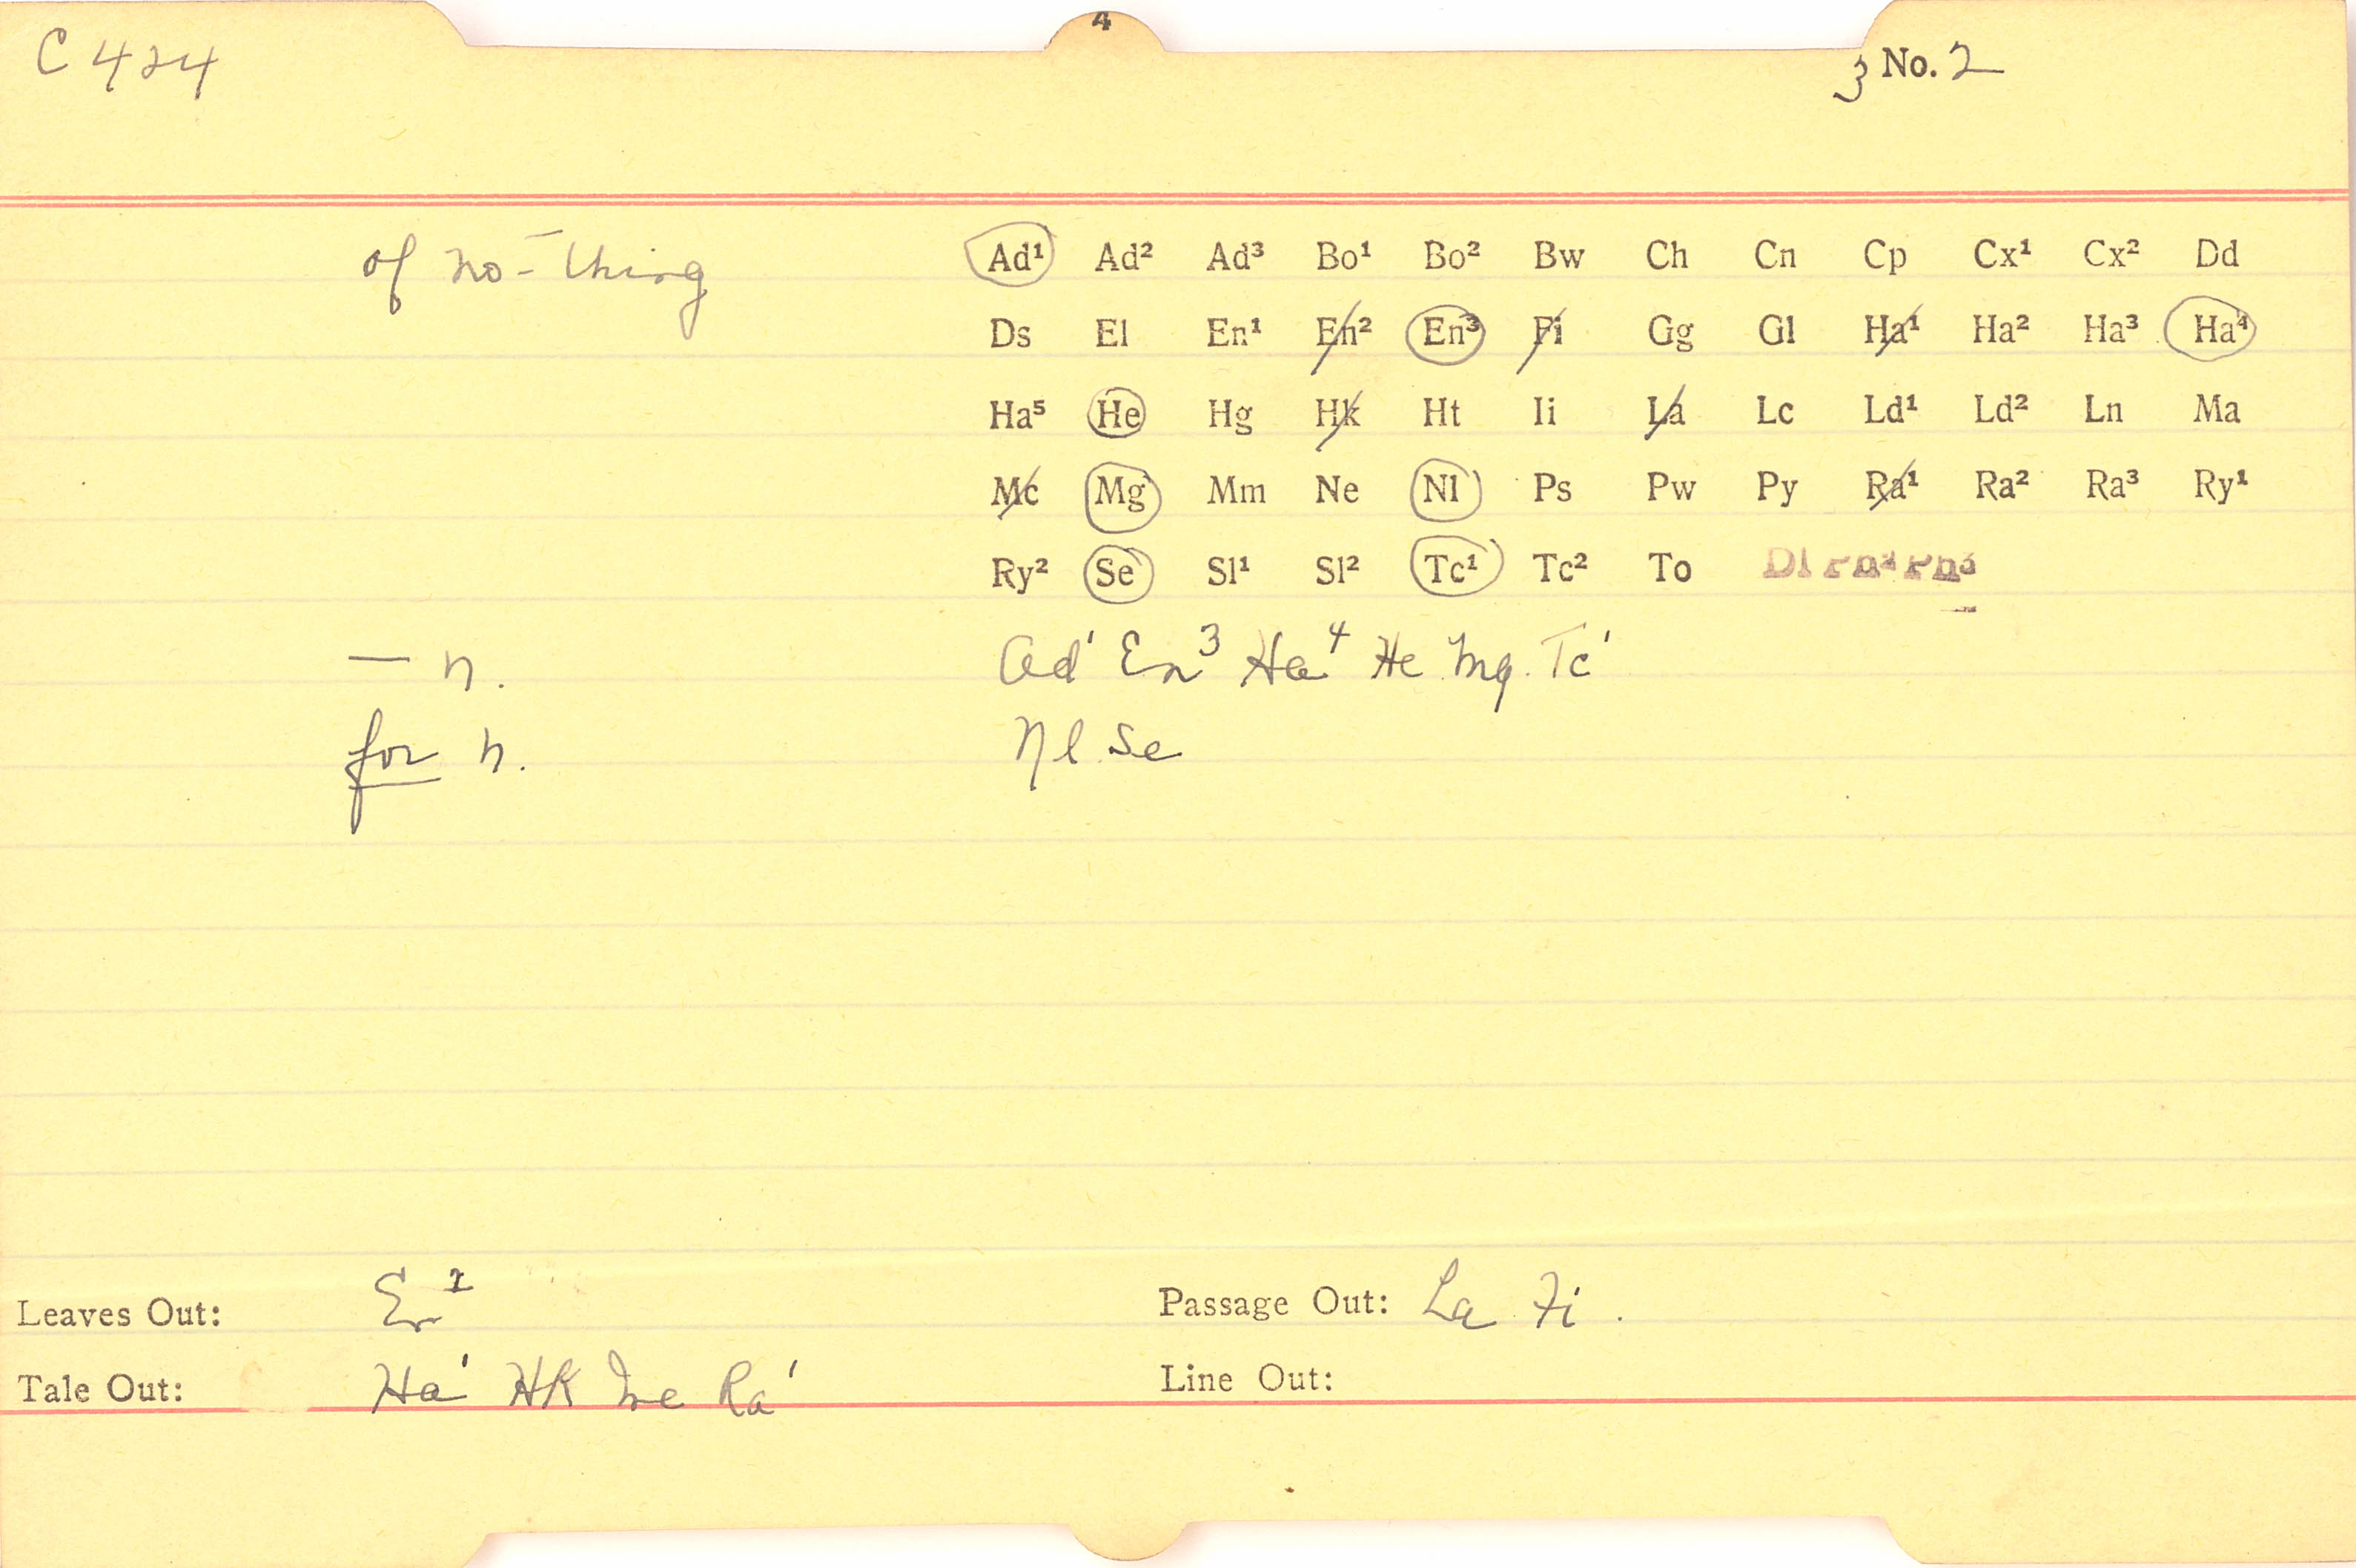 4
C 424
3 No. 2
of no-thing
Ad¹ Ad² Ad³ Bo¹ Bo² Bw Ch Cn Cp Cx¹ Cx² Dd
Ds El En¹ En² En³ Fi Gg Gl Ha¹ Ha² Ha³ Ha⁴
Ha⁵ He Hg Hk Ht Ii La Lc Ld¹ Ld² Ln Ma
Mc Mg Mm Ne Nl Ps Pw Py Ra¹ Ra² Ra³ Ry¹
Ry² Se Sl¹ Sl² Tc¹ Tc² To Dl Pn² Pn³
— n. Ad¹ En³ Ha⁴ He Mg. Tc¹
for n. Nl Se
Leaves Out: En² Passage Out: La Fi.
Tale Out: Ha¹ Hk Mc Ra¹ Line Out: